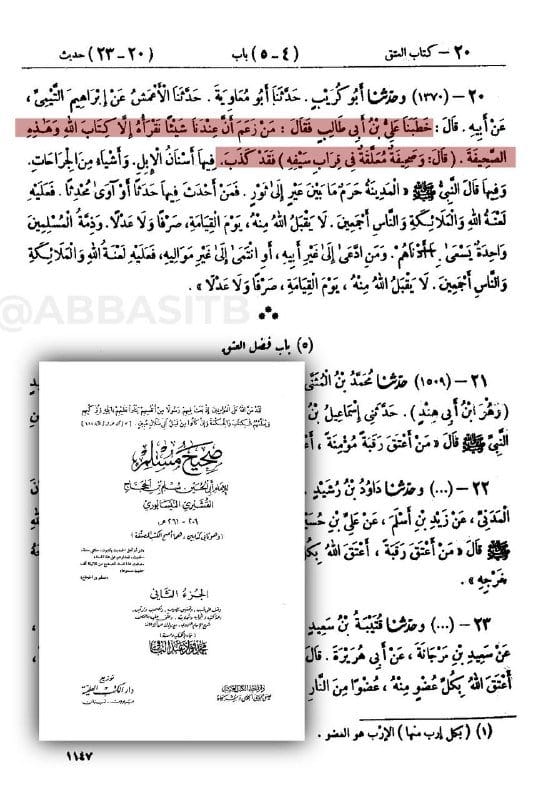 ٢٠ – كتاب العتق
(٤ – ٥) باب
(٢٠–٢٣) حديث
٢٠ – (١٣٧٠) وحدثنا أبو كُرَيْبٍ . حَدَّثَنَا أَبُو مُعَاوِيَةَ . حَدَّثَنَا الْأَعْمَشُ عَنْ إِبْرَاهِيمَ التَّيْمِيِّ ،
عَنْ أَبِيهِ . قَالَ : خَطَبَنَا عَلِيُّ بْنُ أَبِي طَالِبٍ فَقَالَ : مَنْ زَعَمَ أَنَّ عِنْدَنَا شَيْئًا نَقْرَأُهُ إِلَّا كِتَابَ اللهِ وَهٰذِهِ
الصَّحِيفَةَ . ( قَالَ : وَصَحِيفَةٌ مُعَلَّقَةٌ فِي قِرَابِ سَيْفِهِ ) فَقَدْ كَذَبَ . فِيهَا أَسْنَانُ الْإِبِلِ . وَأَشْيَاءُ مِنَ الْجِرَاحَاتِ .
وَفِيهَا قَالَ النَّبِيُّ ﷺ « الْمَدِينَةُ حَرَمٌ مَا بَيْنَ عَيْرٍ إِلَى ثَوْرٍ . فَمَنْ أَحْدَثَ فِيهَا حَدَثًا أَوْ آوَى مُحْدِثًا . فَعَلَيْهِ
لَعْنَةُ اللهِ وَالْمَلَائِكَةِ وَالنَّاسِ أَجْمَعِينَ . لَا يَقْبَلُ اللهُ مِنْهُ ، يَوْمَ الْقِيَامَةِ ، صَرْفًا وَلَا عَدْلًا . وَذِمَّةُ الْمُسْلِمِينَ
وَاحِدَةٌ يَسْعَى بِهَا أَدْنَاهُمْ . وَمَنِ ادَّعَى إِلَى غَيْرِ أَبِيهِ ، أَوِ انْتَمَى إِلَى غَيْرِ مَوَالِيهِ ، فَعَلَيْهِ لَعْنَةُ اللهِ وَالْمَلَائِكَةِ
وَالنَّاسِ أَجْمَعِينَ . لَا يَقْبَلُ اللهُ مِنْهُ ، يَوْمَ الْقِيَامَةِ ، صَرْفًا وَلَا عَدْلًا » .
@ABBASITB
(٥) باب فضل العتق
٢١ – (١٥٠٩) حدثنا مُحَمَّدُ بْنُ الْمُثَنَّى
( وَهُوَ ابْنُ أَبِي هِنْدٍ ) . حَدَّثَنِي إِسْمَاعِيلُ بْنُ
النَّبِيِّ ﷺ قَالَ « مَنْ أَعْتَقَ رَقَبَةً مُؤْمِنَةً ، أَ
٢٢ – (...) وحدثنا دَاوُدُ بْنُ رُشَيْدٍ .
الْمَدَنِيِّ ، عَنْ زَيْدِ بْنِ أَسْلَمَ ، عَنْ عَلِيِّ بْنِ حُسَيْ
ﷺ قَالَ « مَنْ أَعْتَقَ رَقَبَةً ، أَعْتَقَ اللهُ بِكُ
بِفَرْجِهِ » .
٢٣ – (...) وحدثنا قُتَيْبَةُ بْنُ سَعِيدٍ
عَنْ سَعِيدِ بْنِ مَرْجَانَةَ ، عَنْ أَبِي هُرَيْرَةَ . قَالَ
أَعْتَقَ اللهُ بِكُلِّ عُضْوٍ مِنْهُ ، عُضْوًا مِنَ النَّارِ
(١) ( بكل إرب منها ) الإرْب هو العضو .
١١٤٧
صحيح مسلم
للإمام أبي الحسين مسلم بن الحجاج
القشيري النيسابوري
٢٠٦ – ٢٦١ هـ
الجزء الثاني
محمد فؤاد عبد الباقي
توزيع
دار الكتب العلمية
بيروت – لبنان